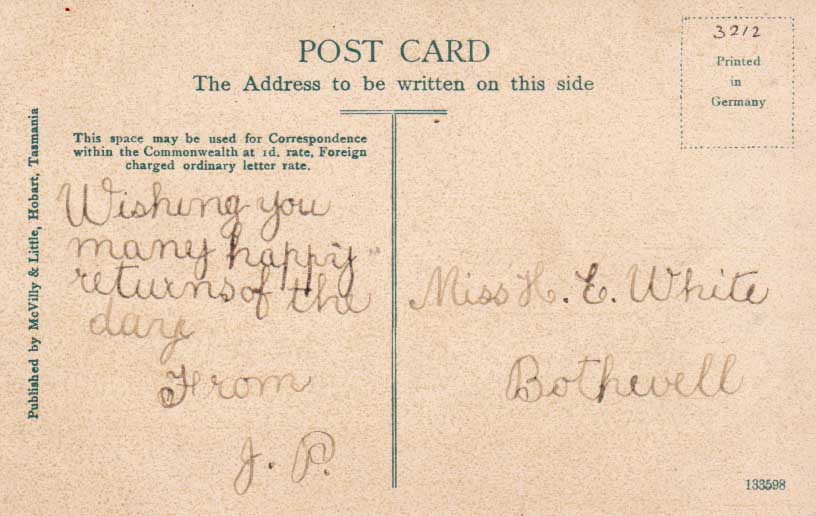 POST CARD
The Address to be written on this side
3212
Printed
in
Germany
This space may be used for Correspondence
within the Commonwealth at 1d. rate, Foreign
charged ordinary letter rate.
Published by McVilly & Little, Hobart, Tasmania
Wishing you
many happy
returns of the
day
From
J. P.
Miss H. E. White
Bothewell
133598